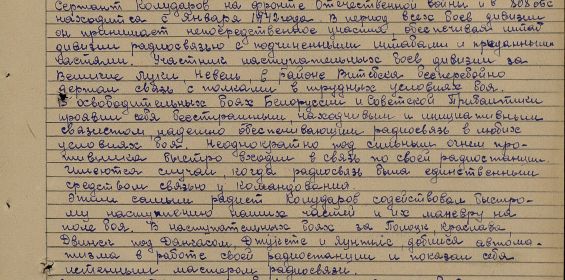 Сержант Комударов на фронте Отечественной войны и в 808 обс
находится с января 1942 года. В период всех боев дивизии
он принимает непосредственное участие обеспечивая штаб
дивизии радиосвязью с подчиненными штабами и приданными
частями. Участник наступательных боев дивизии за
Великие Луки, Невель, в районе Витебска бесперебойно
держал связь с полками в трудных условиях боя.
В освободительных боях Белоруссии и Советской Прибалтики
проявил себя бесстрашным, находчивым и инициативным
связистом, надежно обеспечивающим радиосвязь в любых
условиях боя. Неоднократно под сильным огнем про-
тивника быстро входил в связь по своей радиостанции.
Имеются случаи, когда радиосвязь была единственным
средством связи у командования.
Этим самым радист Комударов содействовал быстро-
му наступлению наших частей и их маневру на
поле боя. В наступательных боях за Полоцк, Краслава,
Двинск под Данчасом, Джуксте и добился автома-
тизма в работе своей радиостанции и показал себя
истенным мастером радиосвязи.